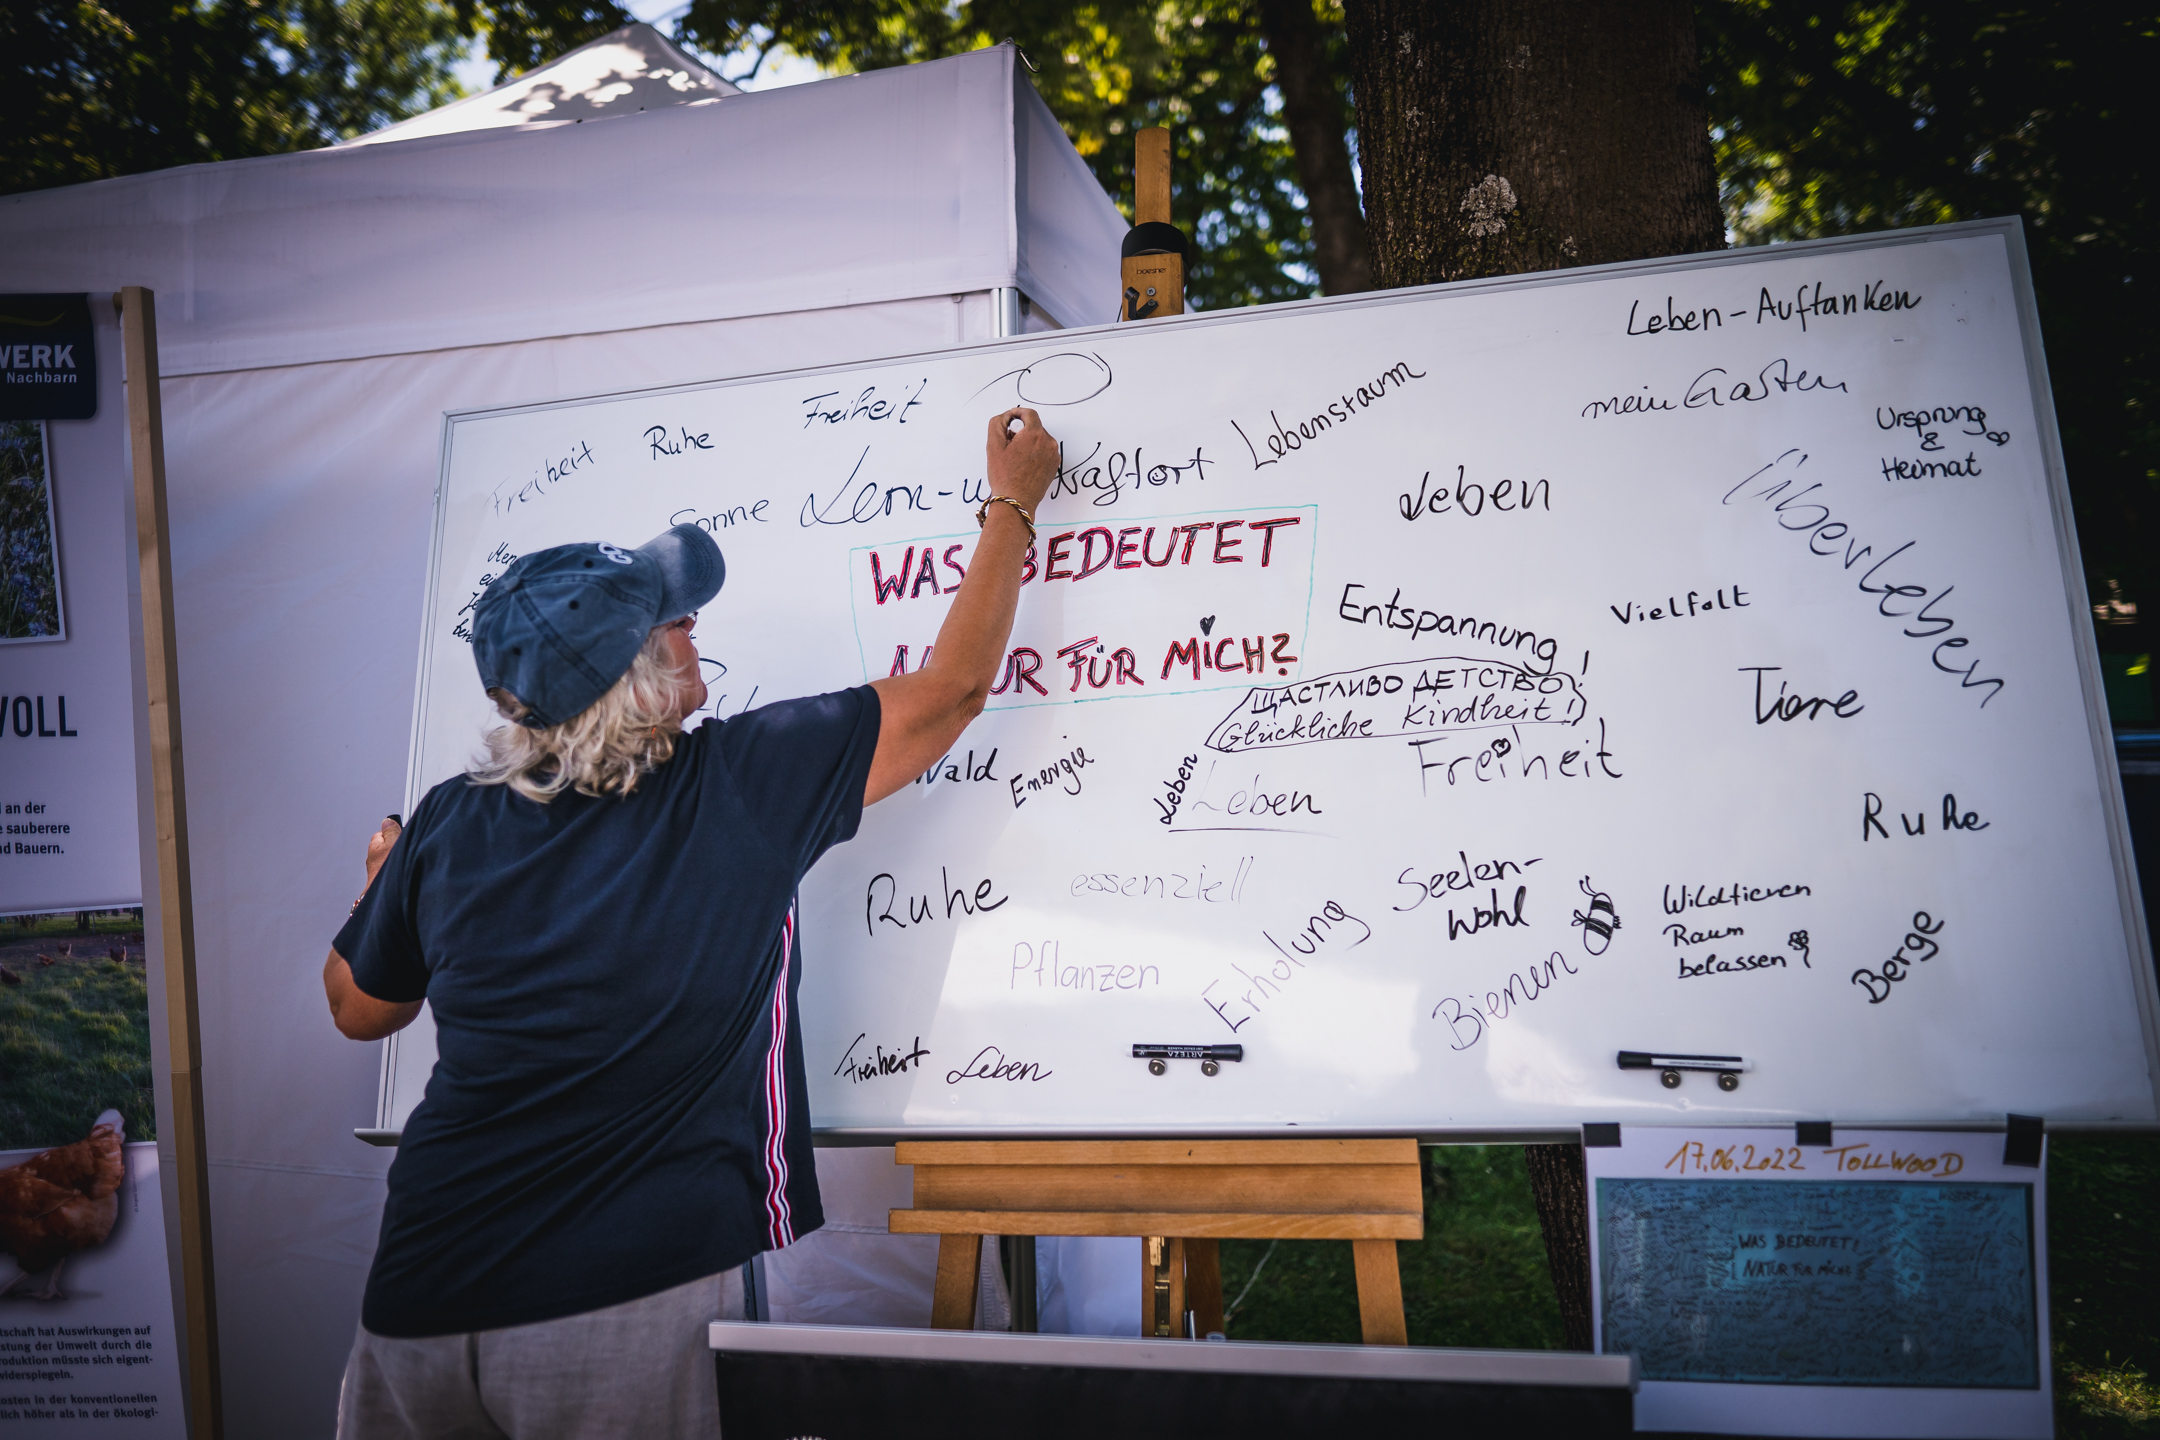 WERK
Nachbarn
VOLL
an der
sauberere
d Bauern.
tschaft hat Auswirkungen auf
stung der Umwelt durch die
roduktion müsste sich eigent-
widerspiegeln.
osten in der konventionellen
lich höher als in der ökologi-
Leben-Auftanken
mein Garten
Ursprung
&
Heimat
Freiheit
Freiheit
Ruhe
Kraftort
Lebensraum
Sonne
Lern-
Leben
Überleben
WAS BEDEUTET
NATUR FÜR MICH?
Entspannung!
Vielfalt
ЩАСТЛИВО ДЕТСТВО!
Glückliche Kindheit!
Tiere
Wald
Energie
Leben
Leben
Freiheit
Ruhe
Ruhe
essenziell
Seelen-
wohl
Wildtieren
Raum
belassen
Pflanzen
Erholung
Bienen
Berge
Freiheit
Leben
ARTEZA
17.06.2022 TOLLWOOD
WAS BEDEUTET
NATUR FÜR MICH?